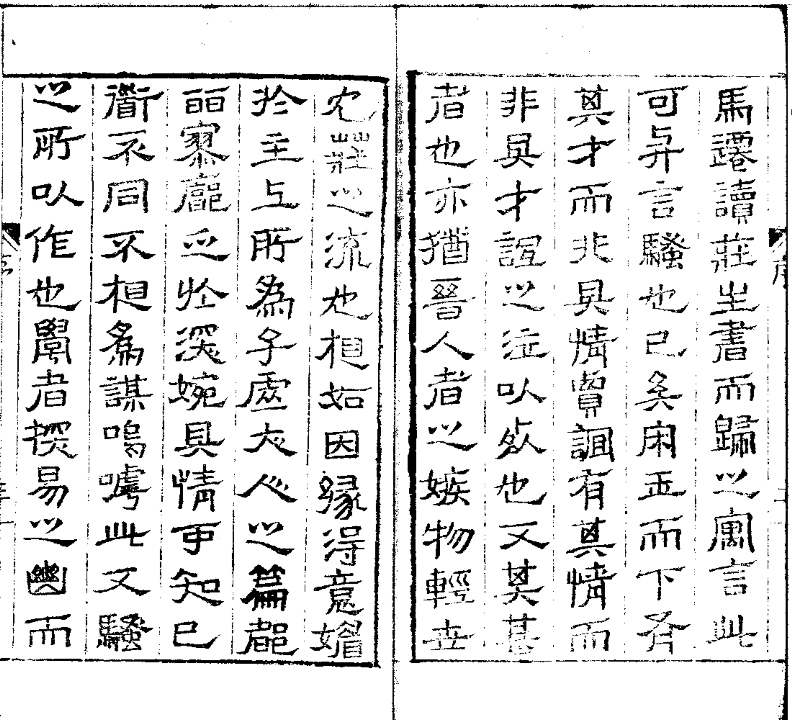 馬遷讀莊生書而歸之寓言此
可與言騷也已矣宋玉而下有
其才而非其情賈誼有其情而
非其才誼之以也又其甚
者也亦猶晉人者之嫉物輕世
莊之流也相如因緣得意媚
於主上所為子虛大人之篇都
麗寥龐於深婉其情知已
道不同不相為謀嗚嘑此又騷
之所以作也學者探易之幽而